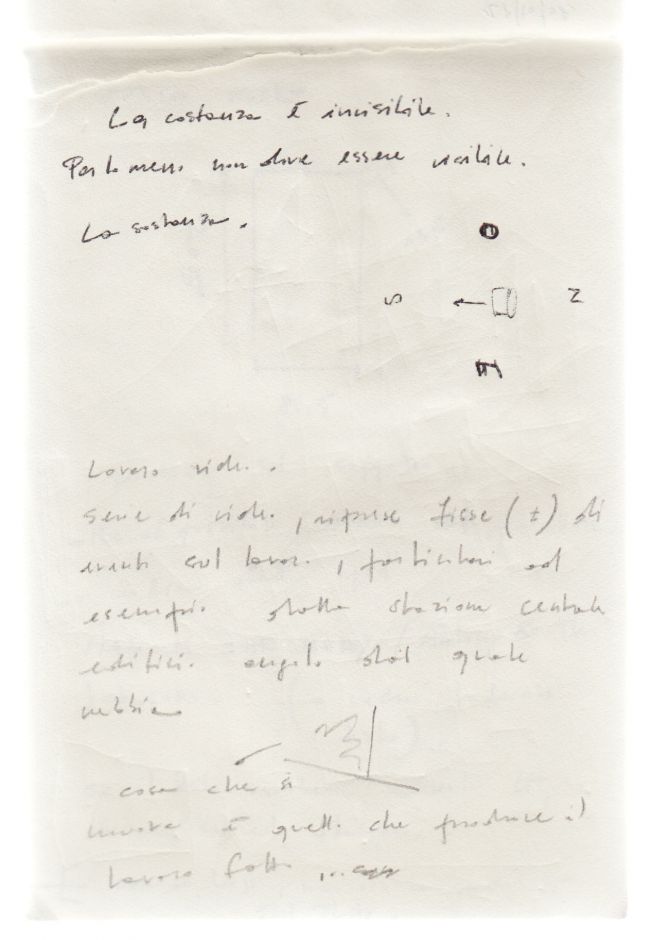 La costanza è invisibile.
Perlomeno non deve essere visibile.
La sostanza.
O
S N
E
Lavoro video.
serie di video, riprese fisse (±) di
eventi sul lavoro, particolari ad
esempio dalla stazione centrale
edificio angolo dal quale
nebbia
cosa che si
muove è quello che produce il
lavoro fatto